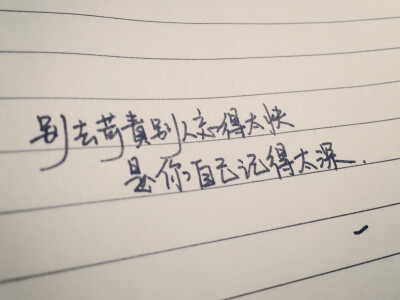 别去苛責别人忘得太快
是你自己记得太深.